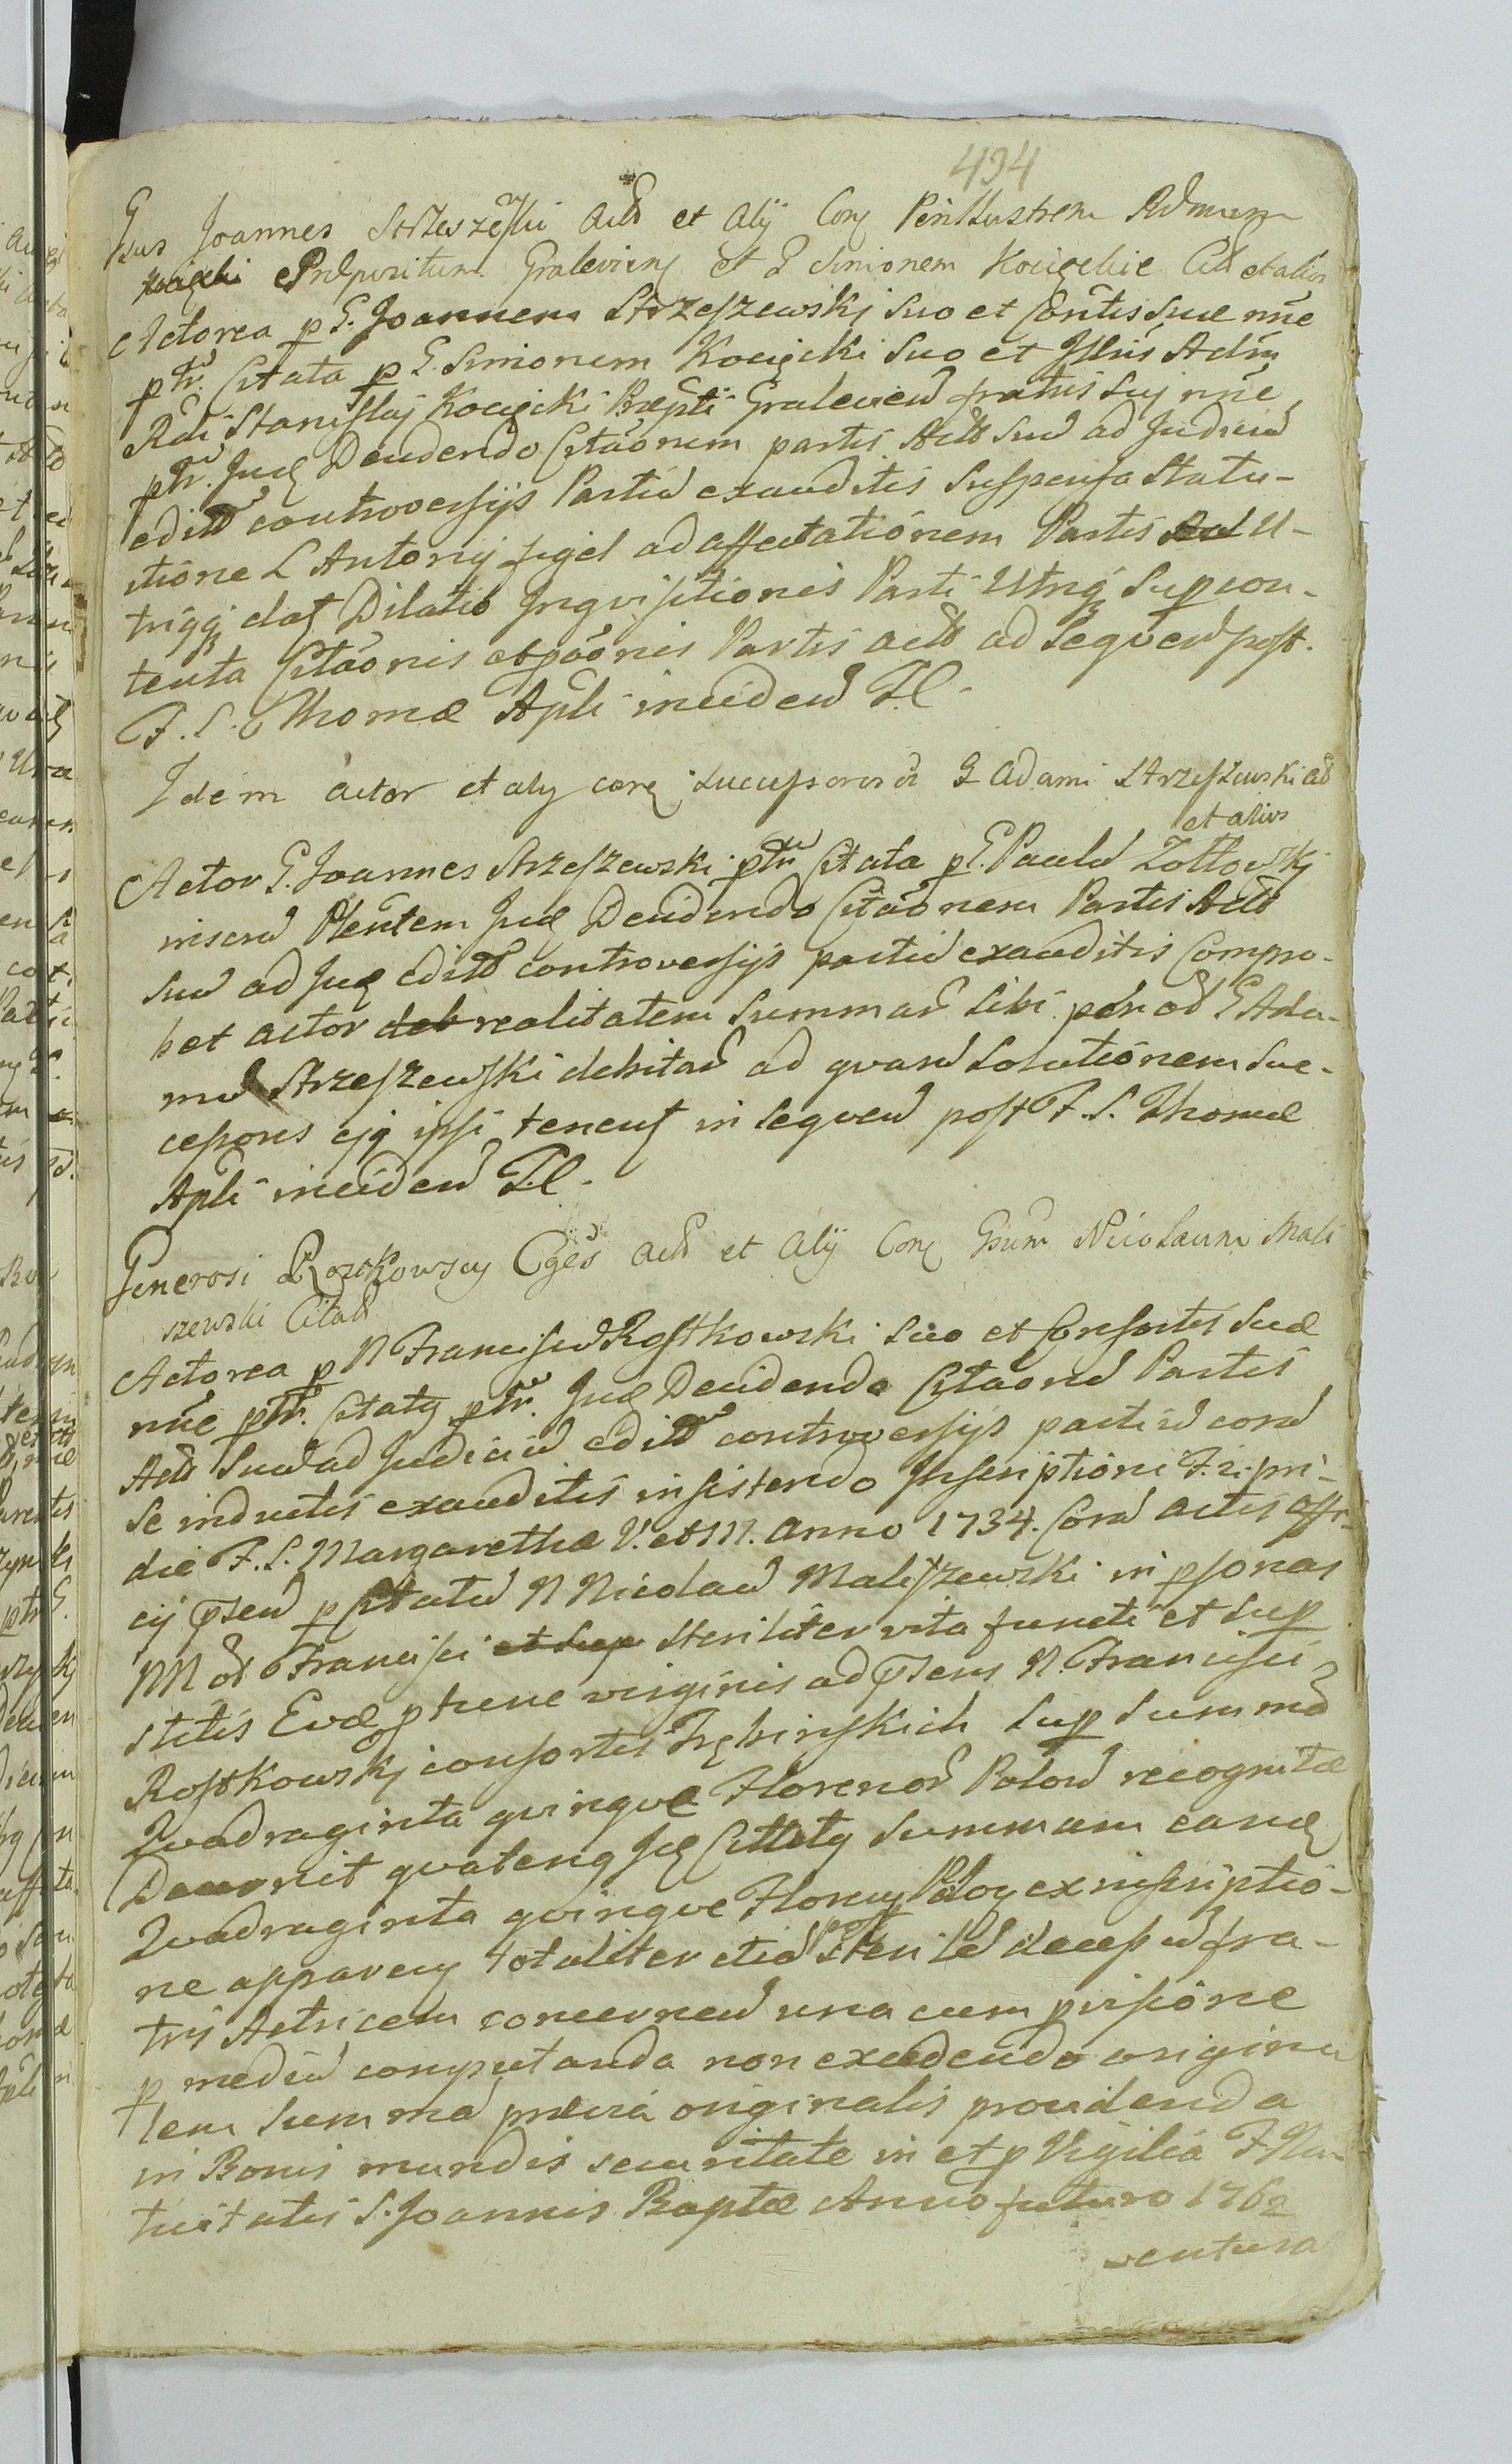 434
Gsus Joannes Strzeszewski Actō et Alÿ Conͭ Perillustrem Admum
Præpositum Gralevienͭ et G Simonem Kocięckie Citͭ et alios
Actorea p G. Joannem Strzeszewskj suo et Contis suæ nne
ptr. Citata p G. Simonem Kocięcki suo et Jllris Adm
Rdi Stanislaj Kocięcki Præpti Graleview fratris suj nne
ptr. Jud Decidendo Citaonem partis Actō suā ad Judiciū
editō controversijs Partiū exauditis suspensa Statu-
itione L Antonij ad affectationem Partis U-
trigq dat Dilatio Jnqvisitionis Parti Utrigq sup con-
tenta Citaonis etpāonis Partis actō ad seqvew post.
F. S. Thomæ Apli incidew T.C.
Idem actor et aly conͭ successores ō G Adami Strzeszewski ad
et alios
Actor G. Joannes Strzeszewski ptr Citata p G. Paulū Zołtowskj
inserū Plentem Jud Decidendo Citaonem Partis Actō
suā ad Jud editō controversijs partiū exauditis Compro-
bet actor realitatem summarū sibi per od G Ada-
mū Strzeszewski debitarū ad qvarū solutionem suc-
cessores ejq ipsi tenent in seqvew post F. S. Thomæ
Apli incidew T.C.
Generosi Rostkowscy Cges Actō et Alÿ Conͭ Gsum Nicolaum Mali
szewski Citatō
Actorea p N Franciscū Rostkowski suo et Consortis suæ
nne ptr. Citatq ptr. Jud Decidendo Citaonē Partis
Actō suā ad Judiciū editō controversijs partiū corā
se inductis exauditis insistendo Jnscriptioni F. 2. pri-
die F. S. Margarethæ V. et M. Anno 1734. Corā actis offi-
cij psew p Citatū N Nicolaū Maliszewski in psonas
NN od Francisci et sup steriliter vita functi et sup
stitis Evæ phunc virginis adpsens N. Francisci
Rostkowskj consortis sup summā
Qvadraginta qvinqve Florenorū Polorū recognitæ
Decernit qvatenq Jd Cittatq summam eand
Qvadraginta qvinqve Florenͭ Poloͭ ex inscriptio-
ne apparenͭ totaliter etiā post sterilē decessū fra-
tris Actricem concernew una cum pvisione
p mediū computanda non excedendo origina
lem summā prævia originalis providenda
in Bonis mundis securitate in et p Vigilia F. Na-
tivitatis S. Joannis Baptæ Anno futuro 1762
ventura